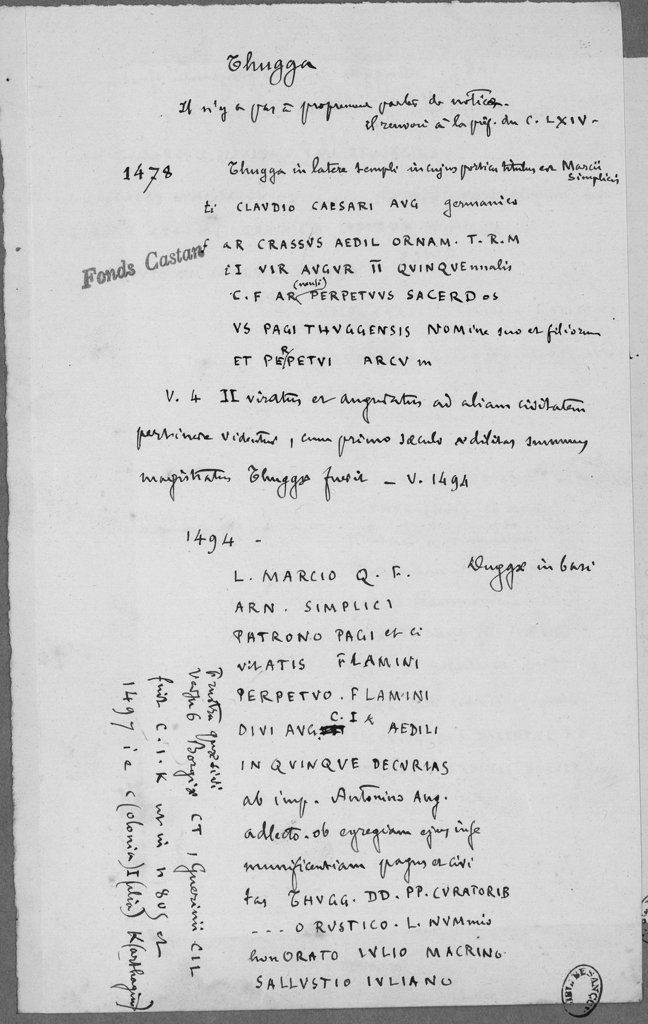 Thugga
Il n'y a pas à proprement parler de notice.
il renvoi à la préf. du C. LXIV.
1478 Thugga in latere templi in cujus porticu titulus est Marcii
Simplicis
ti CLAVDIO CAESARI AVG germanico
Fonds Castan
aR CRASSVS AEDIL ORNAM. T. R. M
iI VIR AVGVR II QVINQVEnnalis
C. F AR PERPETVVS SACERDos
VS PAGI THVGGENSIS NOMine suo et filiorum
ET PERPETVI ARCVm
V. 4 II viratus et auguratus ad aliam civitatem
pertinere videntur, cum primo sæculo ædilitas summus
magistratus Thuggæ fuerit – V. 1494
1494 –
Duggæ in basi
L. MARCIO Q. F.
ARN. SIMPLICI
PATRONO PAGI et ci
vitATIS FLAMINI
PERPETVO. FLAMINI
DIVI AVG. C. I k AEDILI
IN QVINQVE DECVRIAS
ab imp. Antonino Aug.
adlecto. ob egregiam ejus in se
munificentiam pagus et civi
tas THVGG. DD. PP. CVRATORIB
... O RUSTICO. L. NVMmio
honORATO IVLIO MACRINO
SALLVSTIO IVLIANO
Frustra quæsivi
versu 6 Borgiæ CT, Guerinii CIL
fuit C. I. K ut in n 805 et
1497 i e c(olonia) I(ulia) K(arthagini)